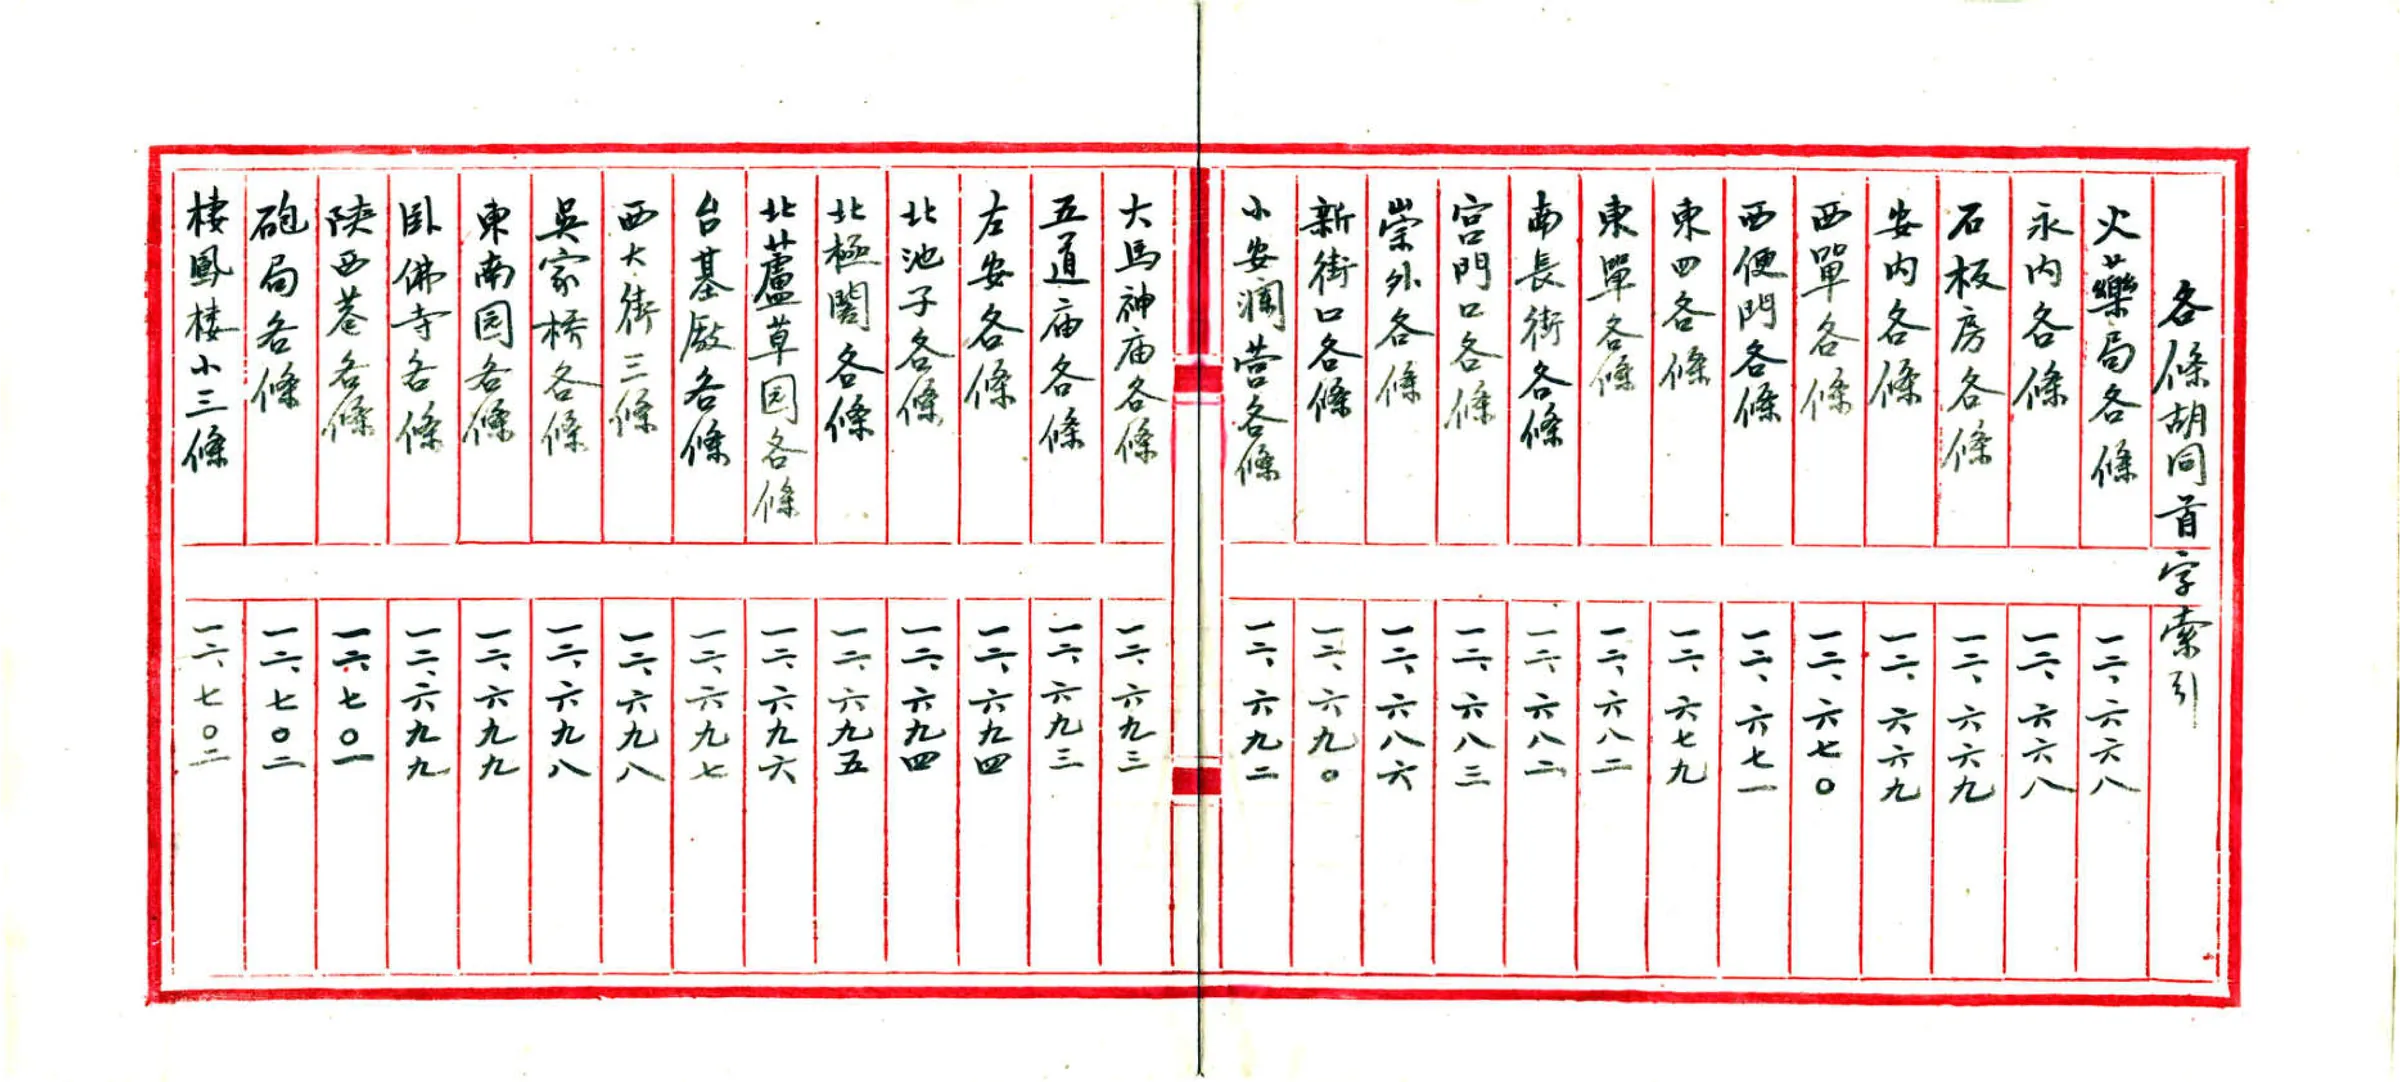 各條胡同首字索引
火藥局各條 一二、六六八
永内各條 一二、六六八
石板房各條 一二、六六九
安内各條 一二、六六九
西單各條 一二、六七〇
西便門各條 一二、六七一
東四各條 一二、六七九
東單各條 一二、六八二
南長街各條 一二、六八二
宫門口各條 一二、六八三
崇外各條 一二、六八六
新街口各條 一二、六九〇
小安瀾营各條 一二、六九二
大馬神庙各條 一二、六九三
五道庙各條 一二、六九三
左安各條 一二、六九四
北池子各條 一二、六九四
北極閣各條 一二、六九五
北蘆草园各條 一二、六九六
台基厰各條 一二、六九七
西大街三條 一二、六九八
吳家桥各條 一二、六九八
東南园各條 一二、六九九
卧佛寺各條 一二、六九九
陝西巷各條 一二、七〇一
砲局各條 一二、七〇二
棲鳳楼小三條 一二、七〇二